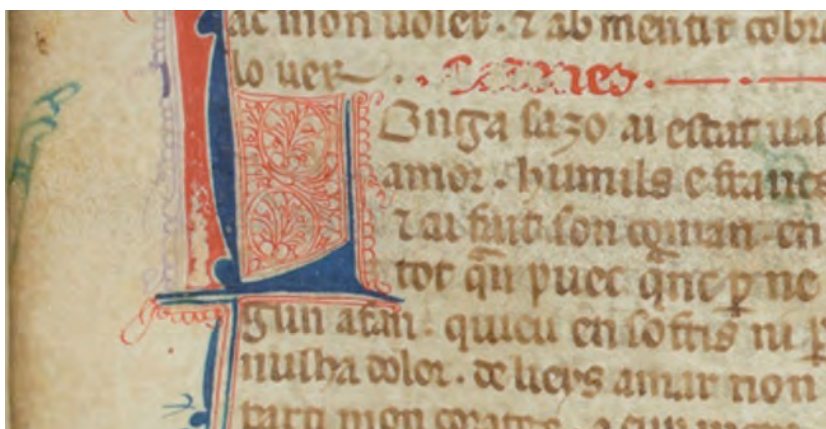 ac mon uoler · ⁊ ab mentir cobr
lo uer
Longa sazo ai estat uas
amor · humils e francs
⁊ ai fait son coman · en
tot q̄n puec q̄nc ꝑ ne
gun afan · quieu en soffris ni ꝑ
nulha dolor · de lieys amar non
parti mon coratge